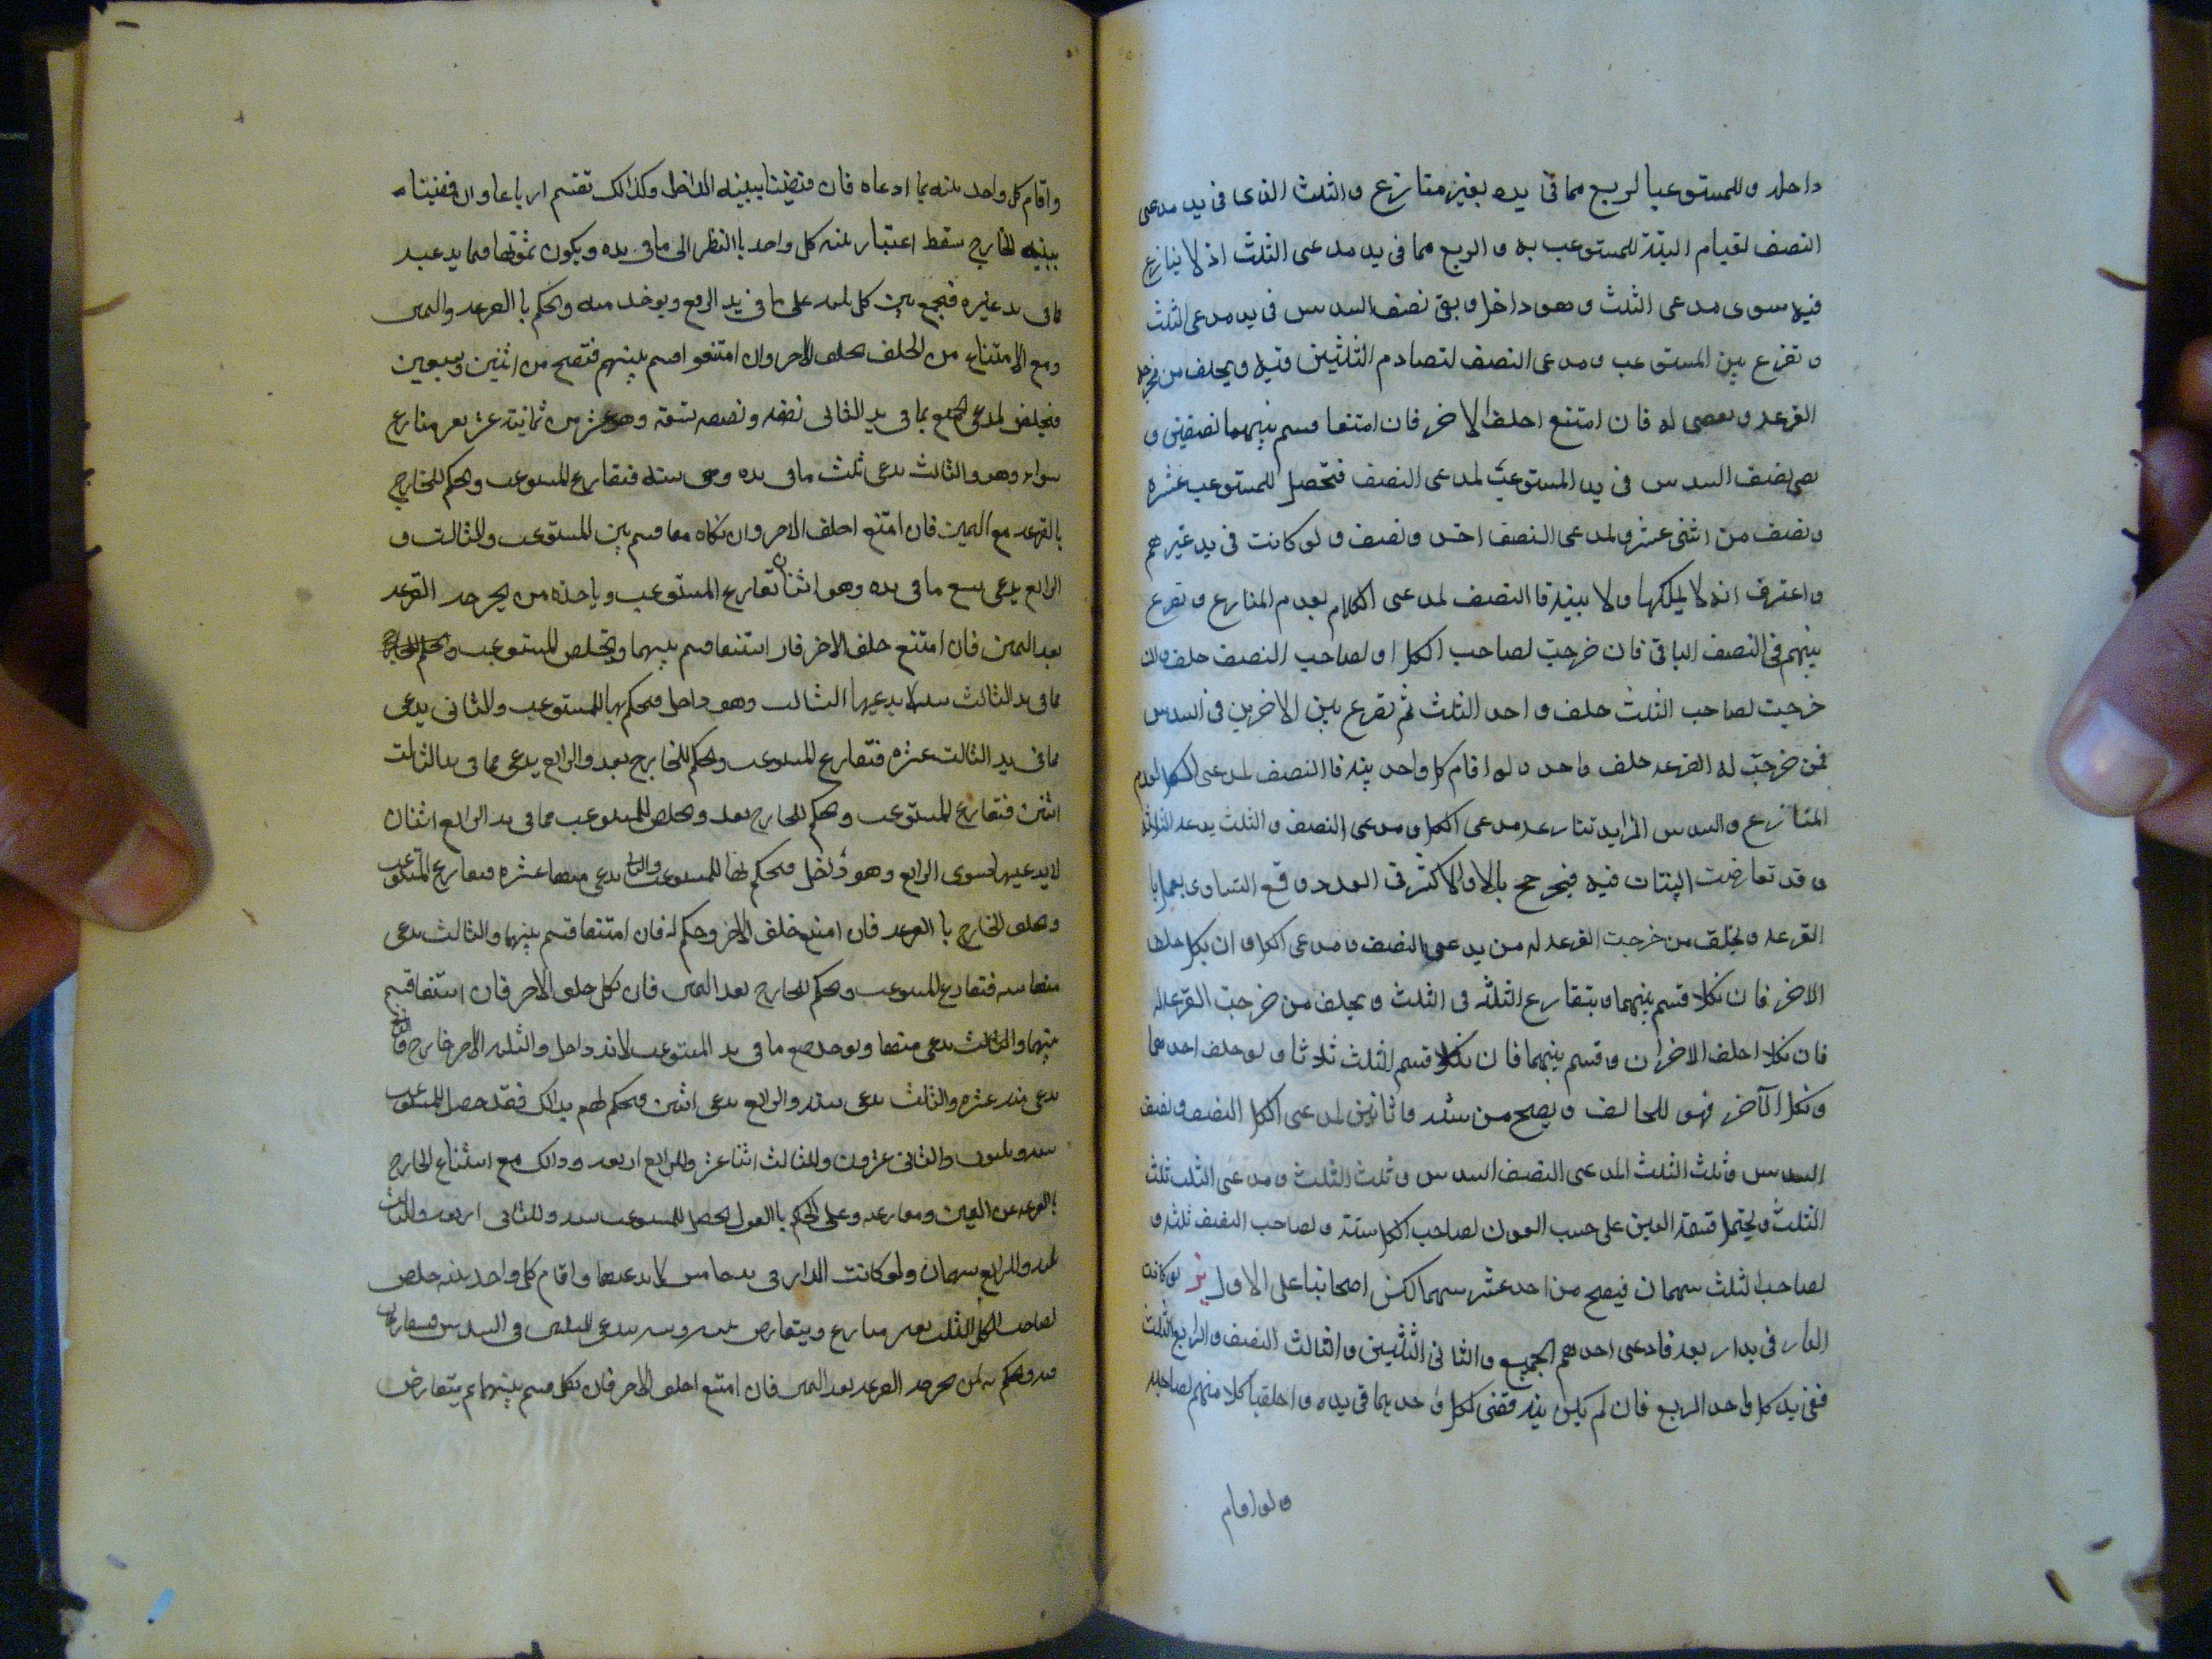 داخل وللمستوعب الربع مما فى يده بغير منازع والثلث الذى فى يد مدعى
النصف لقيام البينة للمستوعب به والربع مما فى يد مدعى الثلث اذ لا ينازع
فيه سوى مدعى الثلث وهو داخل وبقى نصف السدس فى يد مدعى الثلث
وتقرع بين المستوعب ومدعى النصف لتصادم البينتين فيه ويحلف من
القرعه ويقضى له فان امتنع احلف الاخر فان امتنعا قسم بينهما نصفين و
نصف السدس فى يد المستوعب لمدعى النصف فتحصل للمستوعب عشره
ونصف من اثنى عشر ولمدعى النصف ونصف ولو كانت فى يد غيرهم
واعترف انه لا يملكها ولا بينه فالنصف لمدعى الكل لعدم المنازع وتقرع
بينهم فى النصف الباقى فان خرجت لصاحب الكل او لصاحب النصف حلف وان
خرجت لصاحب الثلث حلف واخذ الثلث ثم تقرع بين الاخرين فى السدس
فمن خرجت له القرعه حلف واخذ ولو اقام كل واحد بينه فالنصف لمدعى الكل لعدم
المنازع والسدس الزايد تنازعه مدعى الكل ومدعى النصف والثلث يدعيه الثلثه
وقد تعارضت البينات فيه فيرجح بالاعدل فالاكثر فى العدد ومع التساوى يعمل با
القرعه ويحلف من خرجت القرعه له من يدعى النصف ومدعى الكل وان نكل حلف
الاخر فان نكلا قسم بينهما ويتقارع الثلثه فى الثلث ويحلف من خرجت القرعه له
فان نكل احلف الاخران وقسم بينهما فان نكلا قسم الثلث ثلاثا ولو حلف احدهما
ونكل الآخر فهو للحالف ويصح من سته وثلثين لمدعى الكل النصف ونصف
السدس وثلث الثلث ولمدعى النصف السدس وثلث الثلث ومدعى الثلث ثلث
الثلث ويحتمل قسمة العين على حسب العول لصاحب الكل ستة ولصاحب النصف ثلثه و
لصاحب الثلث سهمان فيصح من احد عشر سهما لكن اصحابنا على الاول لو كانت
الدار فى يد اربعه فادعى احدهم الجميع والثانى الثلثين والثالث النصف والرابع الثلث
ففى يد كل واحد الربع فان لم يكن بينه قضى لكل واحد بما فى يده واحلف كلا منهم لصاحبه
ولو اقام
واقام كل واحد بينه بما ادعاه فان قضينا ببينه الداخل وكذالك تقسم ارباعا وان قضينا
ببينه الخارج سقط اعتبار بينه كل واحد باالنظر الى مافى يده ويكون ثمرتها فيما يدعيه
مما فى يد غيره فيجمع بين كل بينه على ما فى يد الرابع ويوخذ منه ويحكم باالقرعه واليمين
ومع الامتناع من الحلف يحلف الاخر وان امتنعوا قسم بينهم فتصح من اثنين وسبعين
فيخلص لمدعى الجميع مما فى يد الثانى نصفه ونصف تسعه وهو عشره من ثمانية عشر بغير منازع
سواه وهو والثالث يدعى ثلث مافى يده وهى سته فيقارع المستوعب ويحكم للخارج
بالقرعه مع اليمين فان امتنع احلف الاخر وان نكلا معا قسم بين المستوعب والثالث و
الرابع يدعى تسع مافى يده وهو اثنان تقارع المستوعب وياخذه من يخرجه القرعه
بعد اليمين فان امتنع حلف الاخر فان امتنعا قسم بينهما ويخلص للمستوعب
مما فى يد الثالث سته لا يدعيها الثالث وهو داخل فيحكم بها للمستوعب والثانى يدعى
مما فى يد الثالث عشره فتقارع المستوعب ويحكم للخارج بعد والرابع يدعى مما فى يد الثالث
اثنين فتقارع المستوعب ويحكم للخارج بعد ويخلص للمستوعب مما فى يد الرابع اثنان
لا يدعيهما سوى الرابع وهو داخل فيحكم بهما للمستوعب والثانى يدعى منها عشره فيقارع المستوعب
ويحلف الخارج باالقرعه فان امتنع حلف الاخر وحكم له فان امتنعا قسم بينهما والثالث يدعى
منها سته فتقارع المستوعب ويحكم للخارج بعد اليمين فان نكل حلف الاخر فان امتنعا قسم
بينهما ويوخذ جميع ما فى يد المستوعب لانه داخل والثلثه الاخر خارج فالثانى
يدعى منه عشره والثالث يدعى سته والرابع يدعى اثنين فيحكم لهم بذالك فقد حصل للمستوعب
سته وثلثون والثانى عشرون وللثالث اثنا عشر وللرابع اربعه وذالك مع امتناع الخارج
باالقرعه عن اليمين ومقارعه وعلى الحكم باالعول يحصل للمستوعب سته وللثانى اربعه وللثالث
ثلثه وللرابع سهمان ولو كانت الدار فى يد خامس لا يدعيها واقام كل واحد بينه خلص
لصاحب الكل الثلث بغير منازع ويتعارض بينته وبينه مدعى الثلثين فى السدس فيتقارعان
فيه ويحكم به لمن تخرجه القرعه بعد اليمين فان امتنع احلف الاخر فان نكل قسم بينهما ثم يتعارض